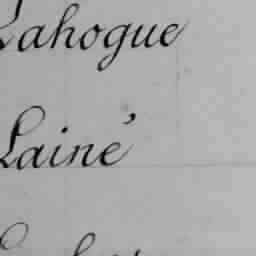 Lahogue
Lainé